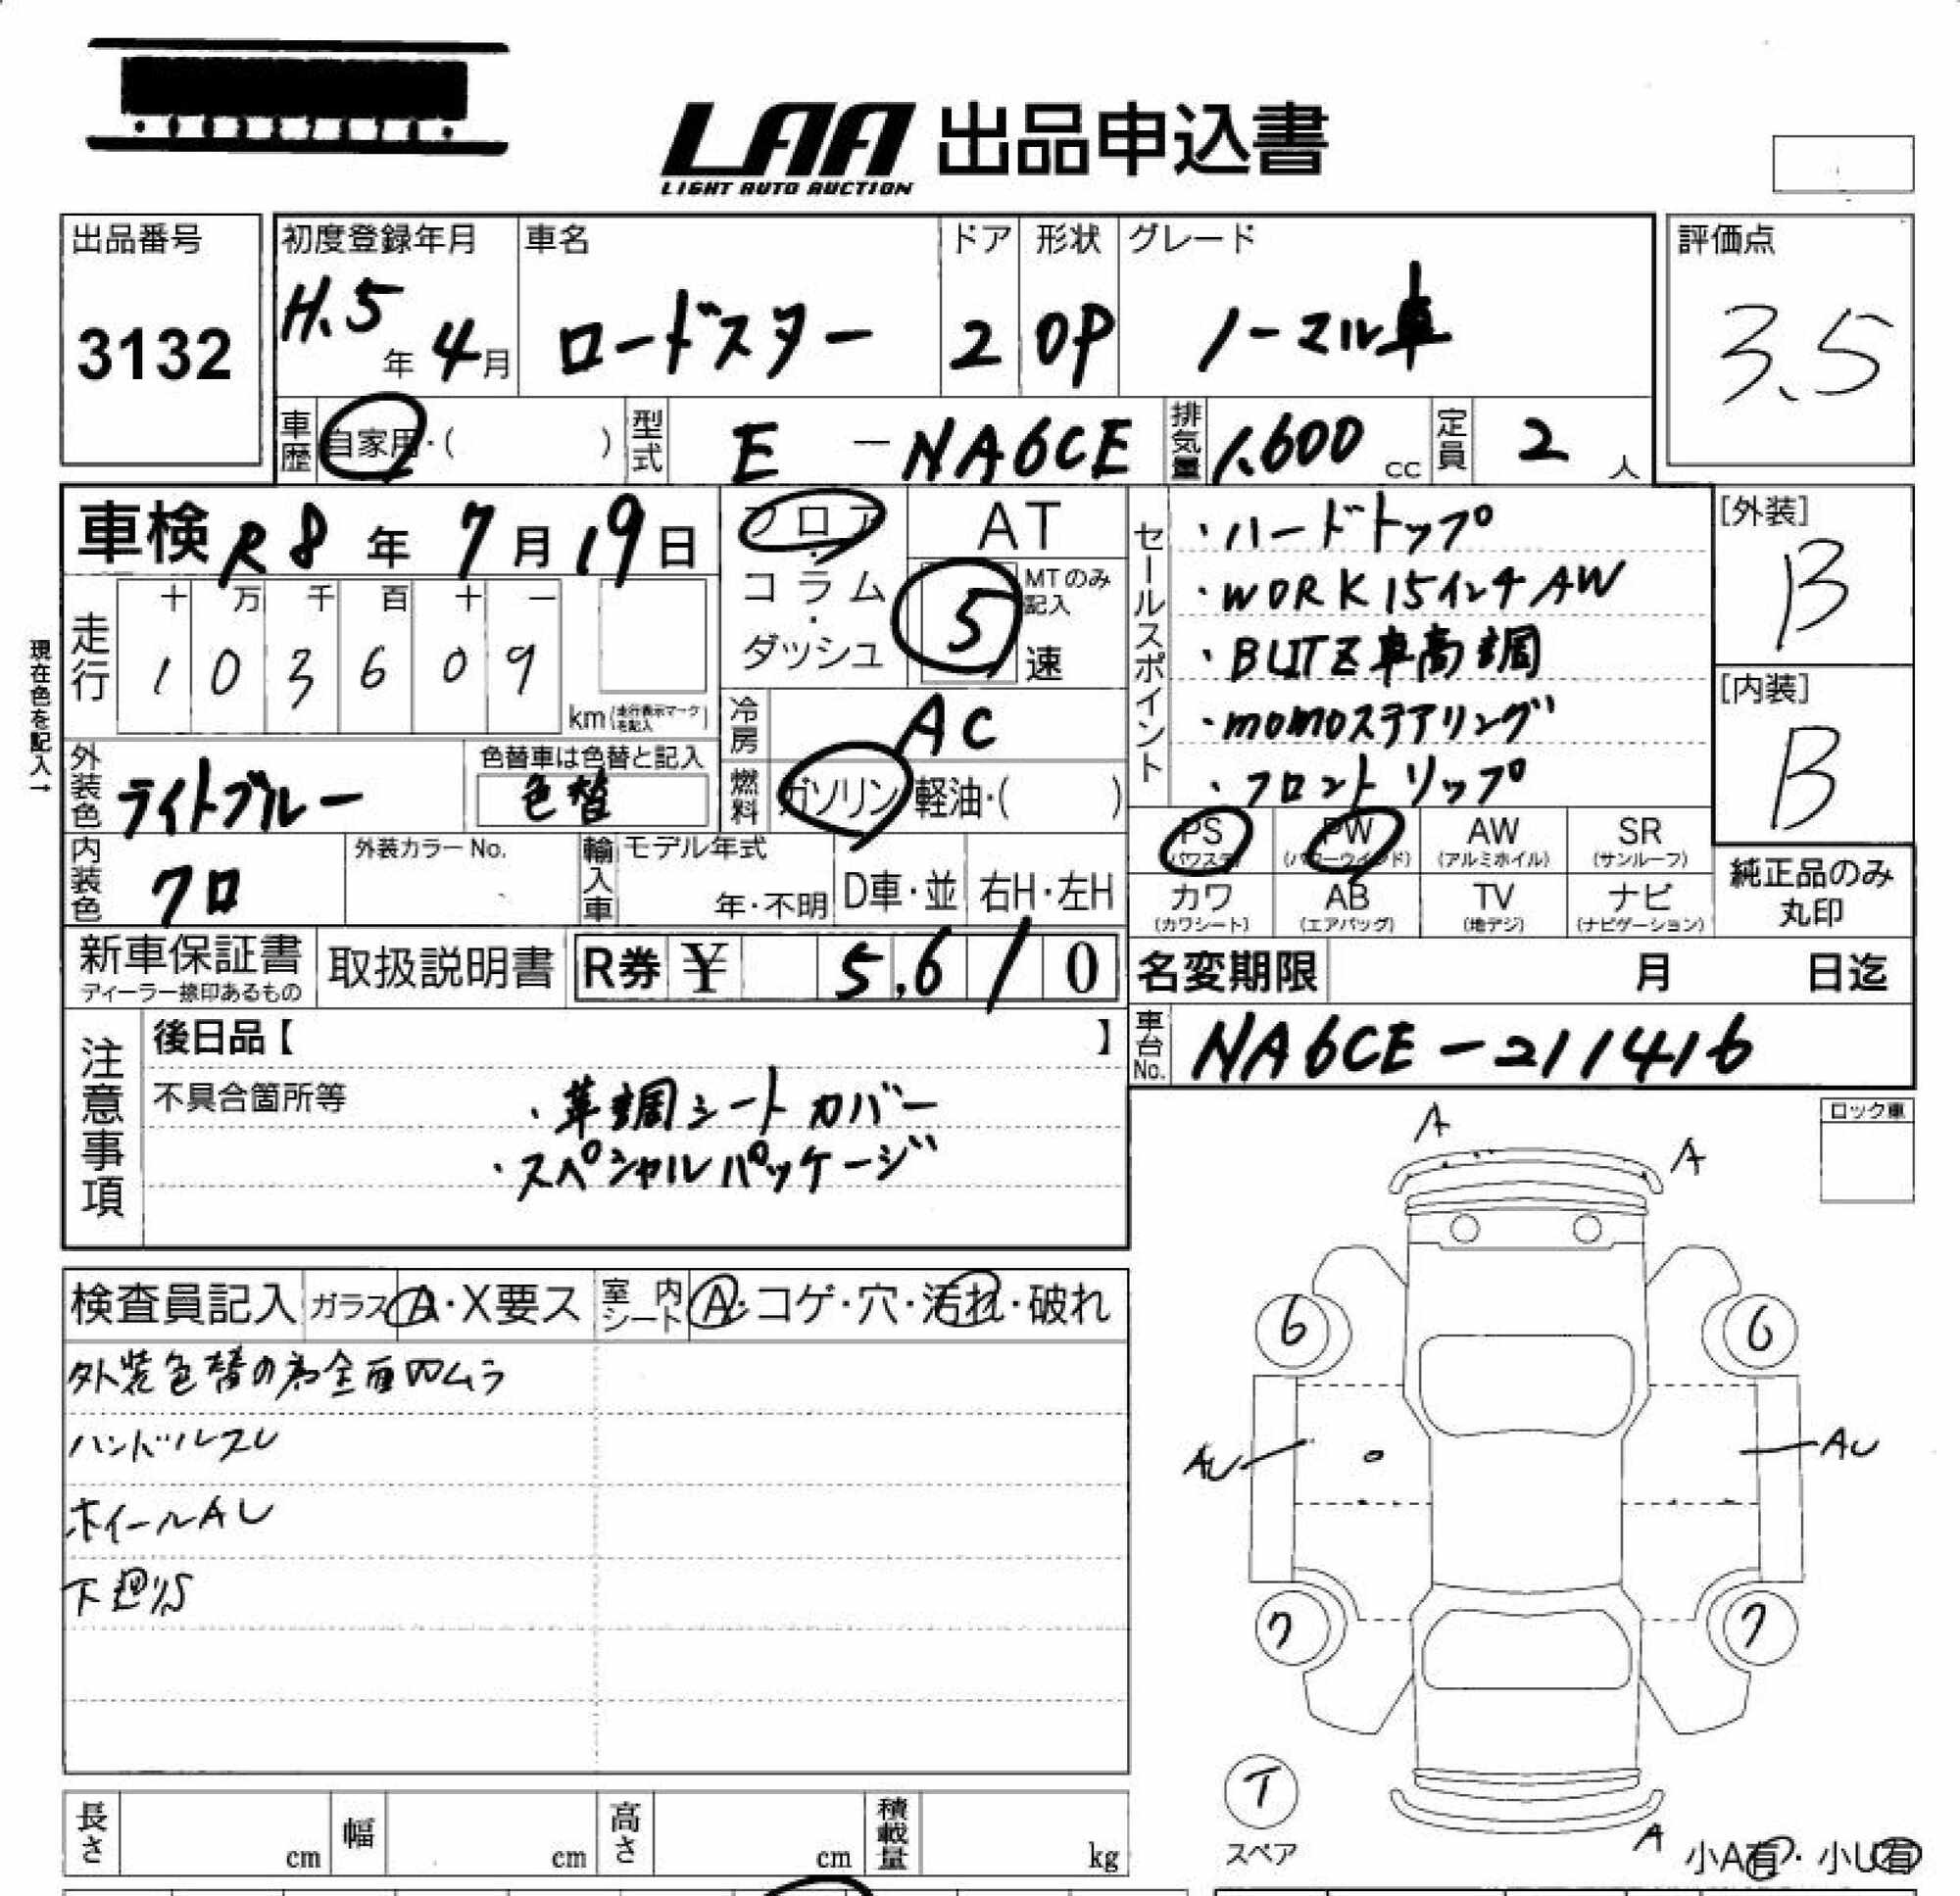 LAA 出品申込書
LIGHT AUTO AUCTION
出品番号
3132
初度登録年月
H.5年 4月
車名
ロードスター
ドア
2
形状
OP
グレード
ノーマル車
評価点
3.5
車歴 自家用・( )
型式 E-NA6CE
排気量 1,600 cc
定員 2人
車検 R8年 7月 19日
フロア・コラム・ダッシュ
AT
MTのみ記入
5速
セールスポイント
・ハードトップ
・WORK 15インチ AW
・BLITZ 車高調
・momoステアリング
・フロントリップ
[外装]
B
[内装]
B
現在色を記入→
走行
十 万 千 百 十 一
1 0 3 6 0 9
km(走行表示マークを記入)
冷房 AC
燃料 ガソリン 軽油・( )
外装色 ライトブルー
色替車は色替と記入
色替
内装色 クロ
外装カラーNo.
輸入車 モデル年式
年・不明
D車・並
右H・左H
PS (パワステ)
PW (パワーウインド)
AW (アルミホイル)
SR (サンルーフ)
カワ (カワシート)
AB (エアバッグ)
TV (地デジ)
ナビ (ナビゲーション)
純正品のみ丸印
新車保証書
ディーラー捺印あるもの
取扱説明書
R券 ¥ 5,610
名変期限 月 日迄
車台No. NA6CE-211416
注意事項
後日品【 】
不具合箇所等
・革調シートカバー
・スペシャルパッケージ
ロック車
A
A
検査員記入
ガラス A・X要ス
室内シート A・コゲ・穴・汚れ・破れ
外装色替の為全面凹ムラ
ハンドルスレ
ホイールAU
下廻りS
6
6
AU
AU
7
7
T
スペア
A
小A有・小U有
長さ cm
幅 cm
高さ cm
積載量 kg